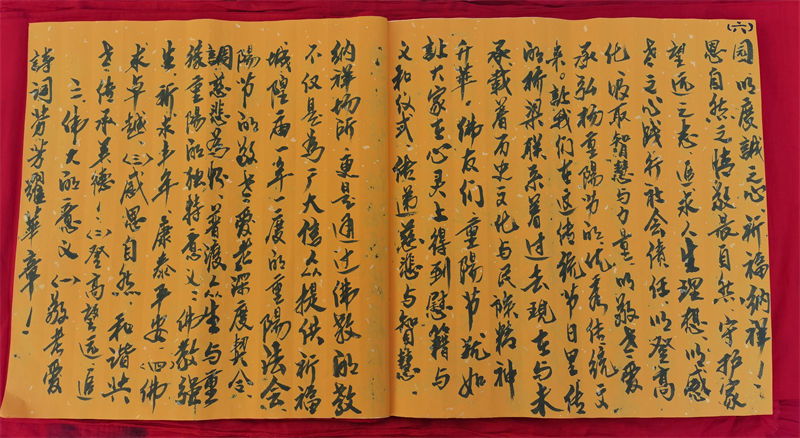 詩詞芳芳耀華章!
三、佛大的寓义(一)敬老爱
老传承美德!(二)登高望远追
求卓越,(三)感恩自然,和谐共
生,祈求丰年,康泰平安(四)佛
缘重陽的独特寓义:佛教強
調慈悲為怀,普渡众生与重
陽节的敬老爱老深度契合
城隍庙一年一度的重陽法会
不仅是為广大信众提供祈福
纳祥场所,更是通过佛教的教
义和仪式,传递慈悲与智慧
让大家在心灵上得到慰籍与
升華。佛友们重陽节犹如
承载着历史文化与民族精神
的桥梁联系着过去現在与未
来。让我们在这传统节日里传
承弘扬重陽节的优秀传统文
化,汲取智慧与力量,以敬老爱
老之心践行社会责任,以登高
望远之志追求人生理想,以感
恩自然之情敬畏自然,守护家
园,以虔誠之心,祈福纳祥!
(六)